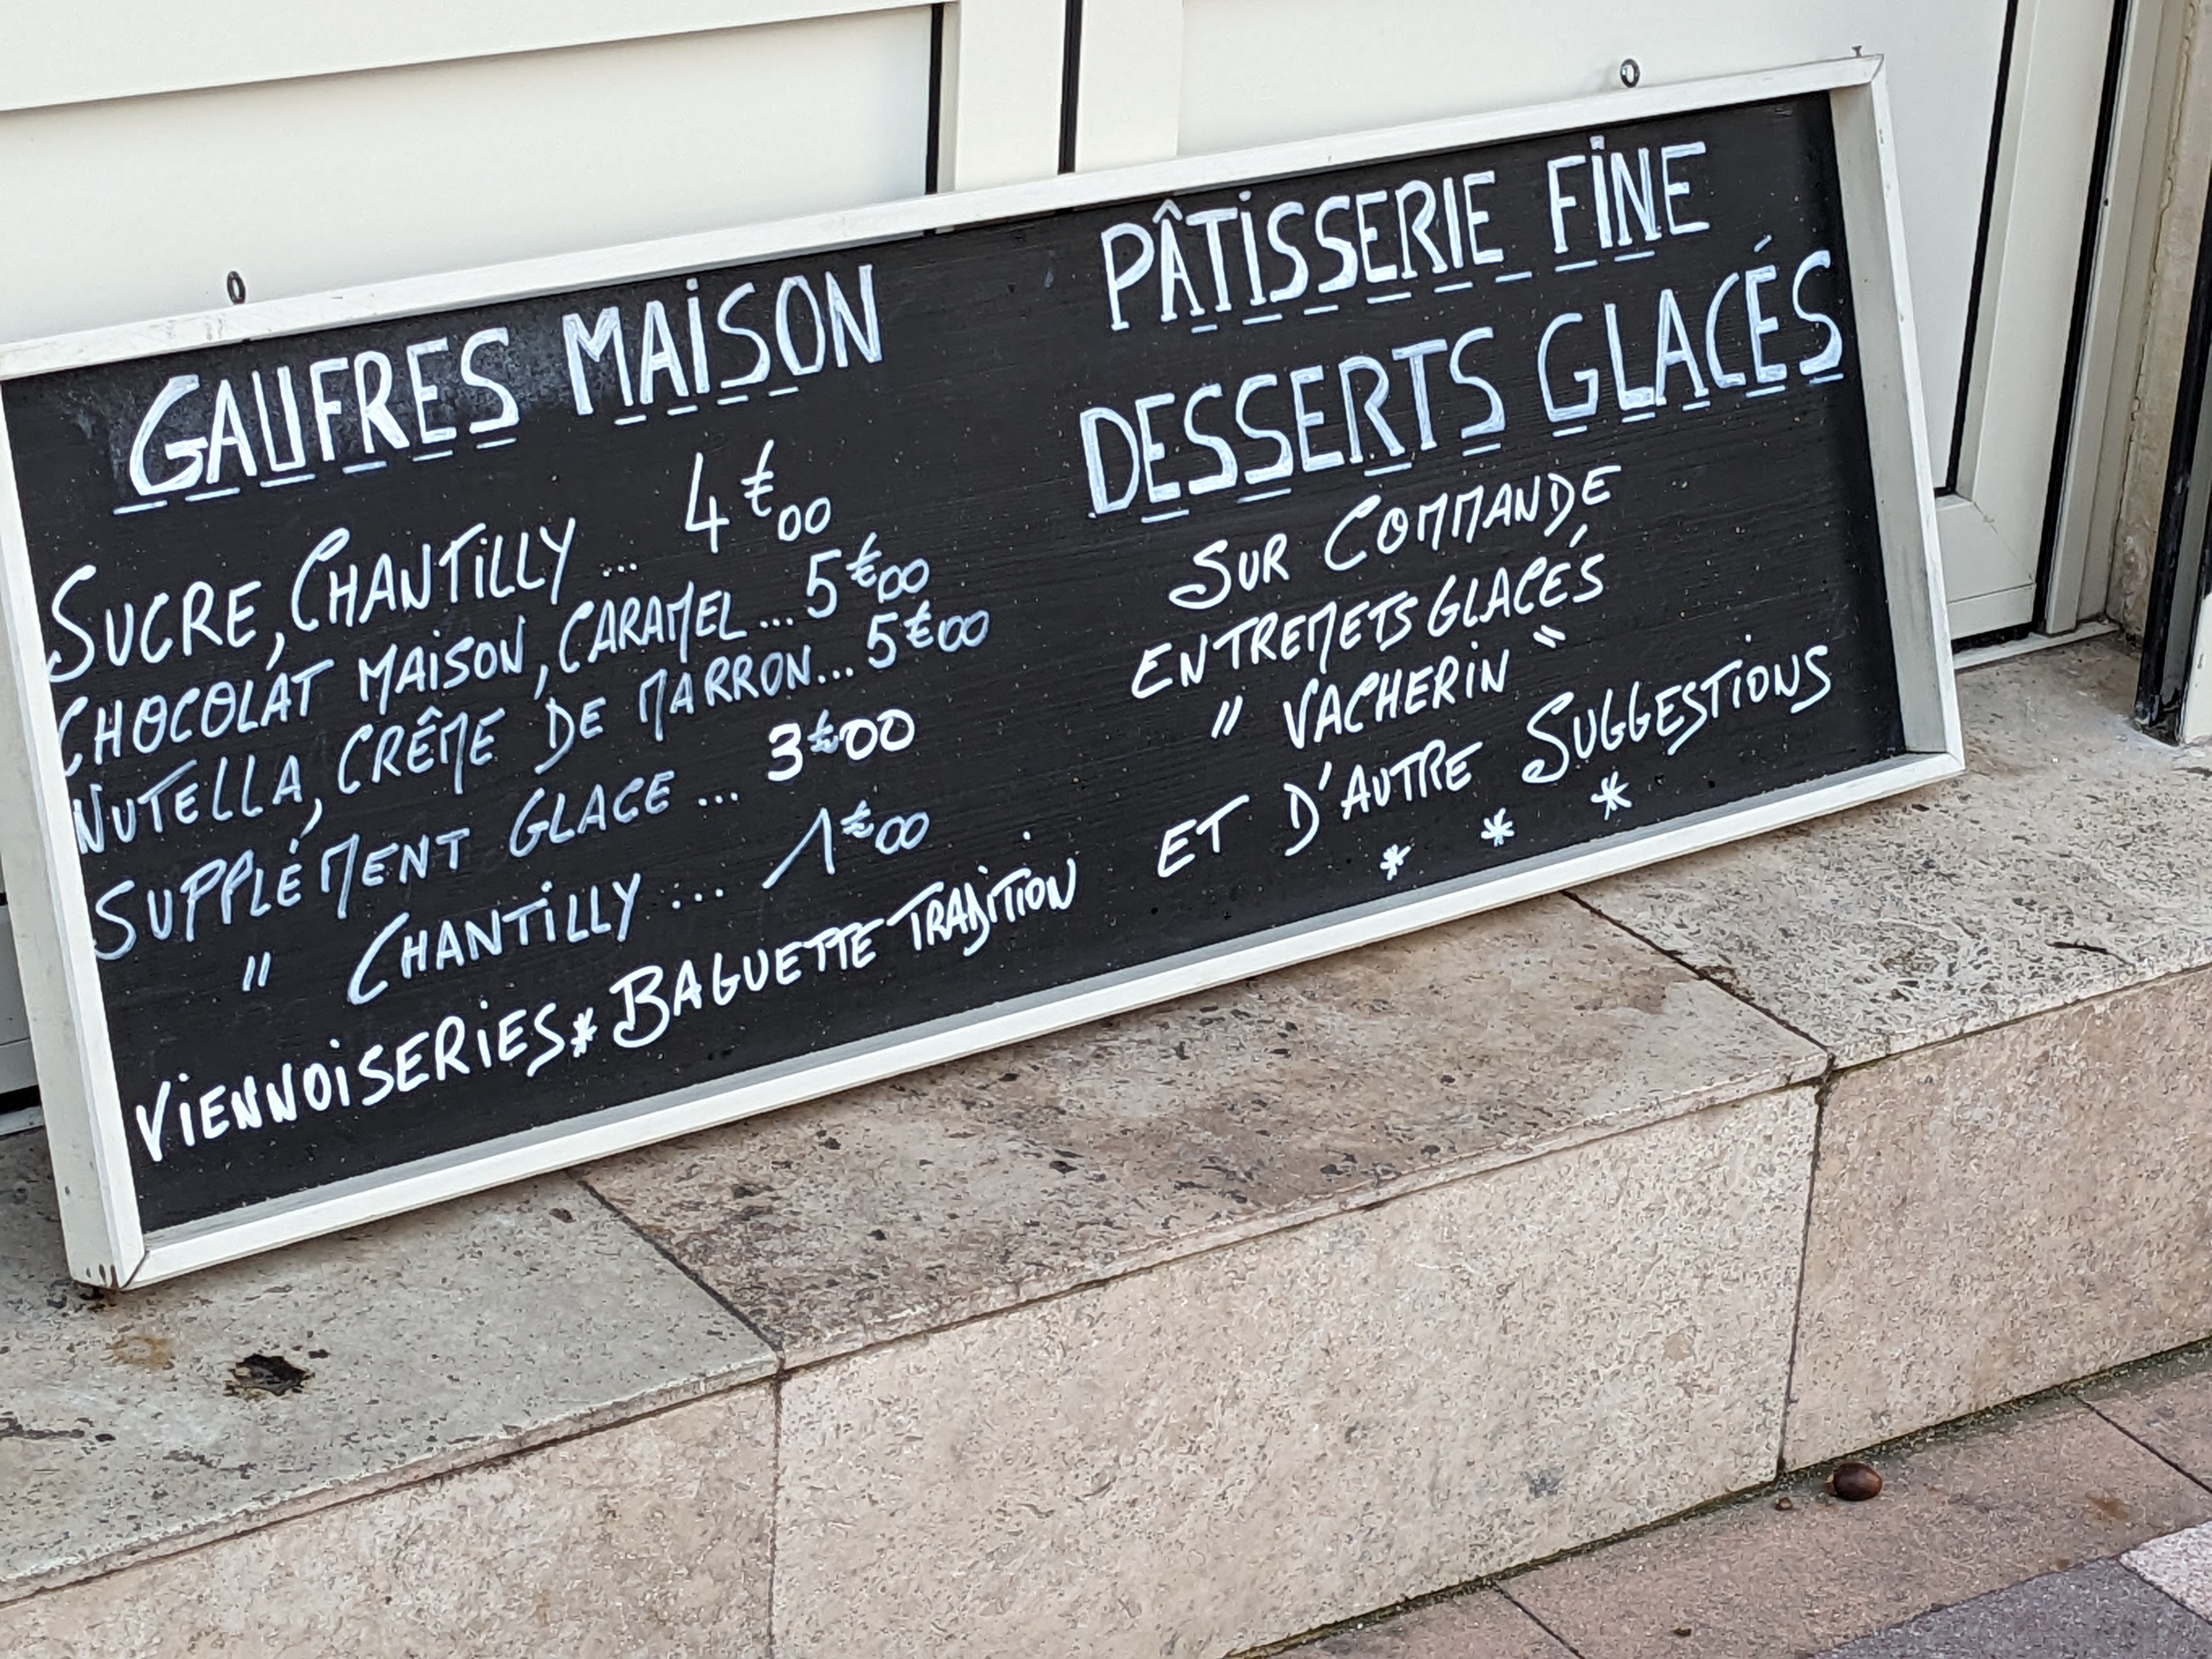 GAUFRES MAISON
SUCRE, CHANTILLY ... 4€00
CHOCOLAT MAISON, CARAMEL ... 5€00
NUTELLA, CRÊME DE MARRON... 5€00
SUPPLÉMENT GLACE ... 3€00
" CHANTILLY ... 1€00
VIENNOISERIES * BAGUETTE TRADITION
PÂTISSERIE FINE
DESSERTS GLACÉS
SUR COMMANDE
ENTREMETS GLACÉS
" VACHERIN "
ET D'AUTRE SUGGESTIONS
* * *